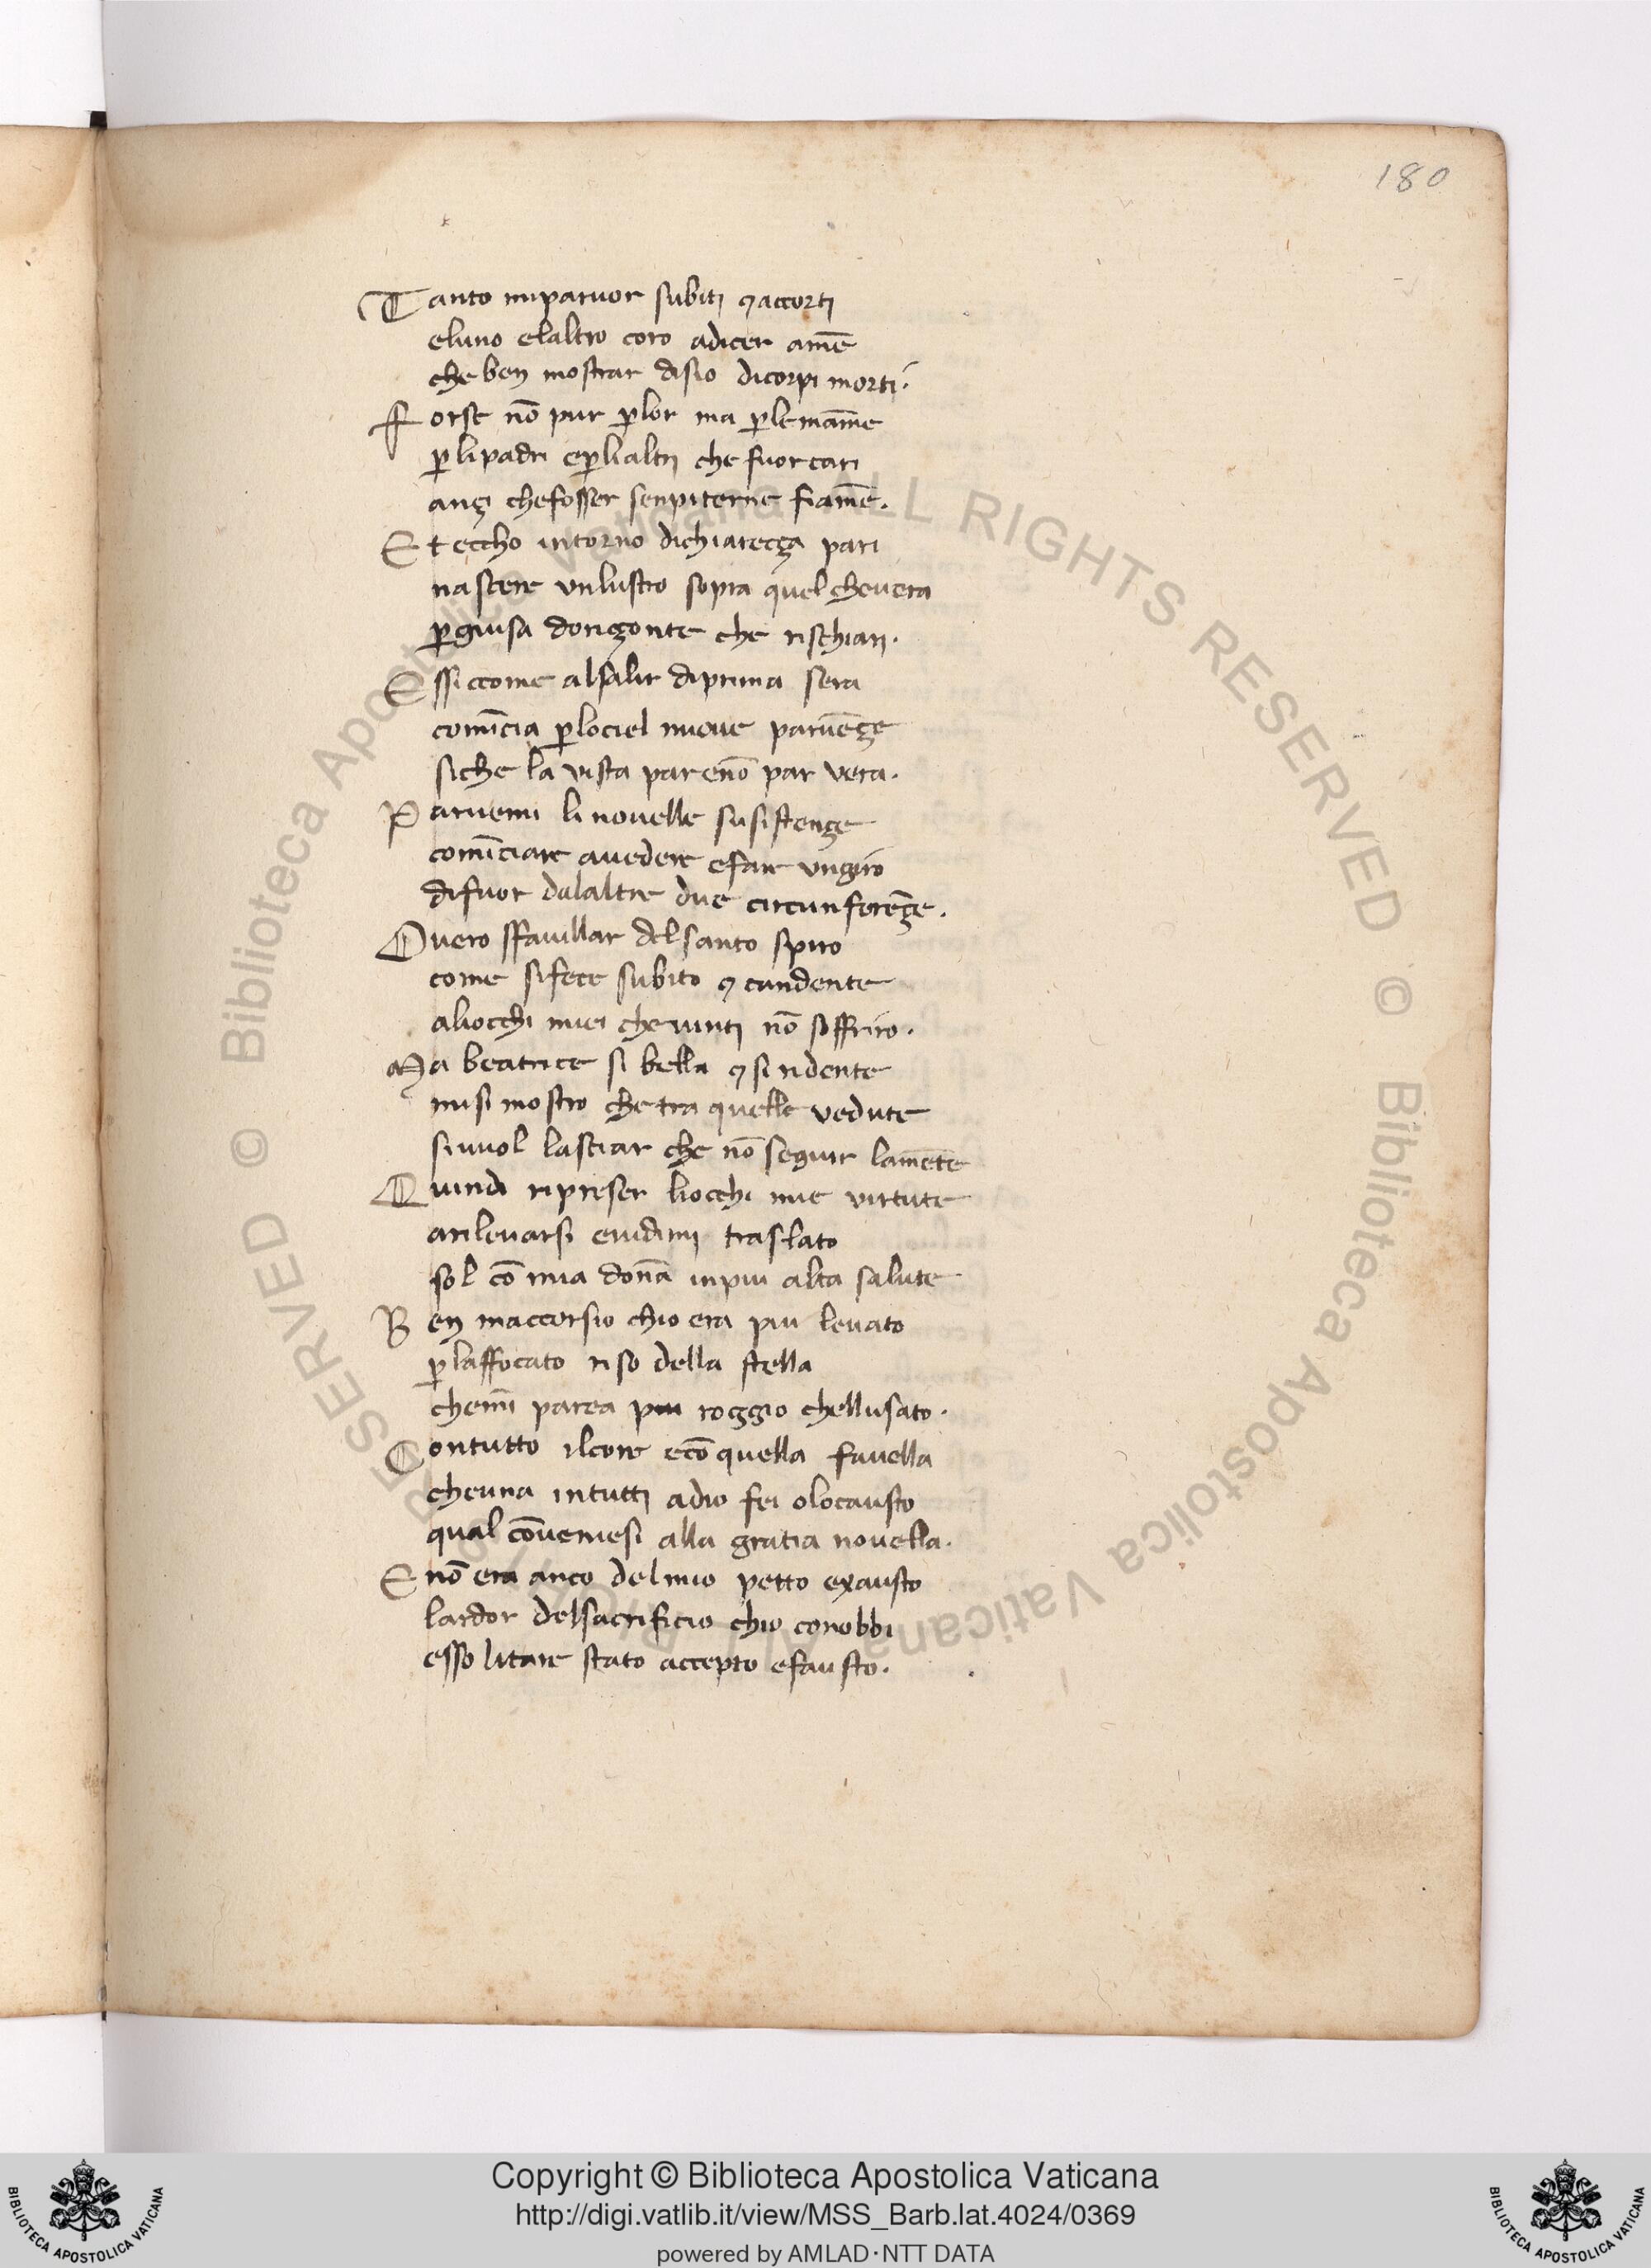 180
Tanto miparuor subiti ꝯaccorti
eluno elaltro coro adicer amē
che ben mostrar disio dicorpi morti.
Forse nō pur ꝑlor ma ꝑlemam̄e
ꝑlipadri eꝑlialtri che fuorcari
ançi chefosser senpiterne fiam̄e.
Et eccho intorno dichiarecça pari
nascere vnlustro sopra quel chevera
ꝑguisa doriçonte che rischiari.
Essiccome alsalir diprima sera
comīcia ꝑlociel nuoue paruēçe
siche la vista parenō par vera.
Paruemi li nouelle susistençe
comīciare auedere efare vngiro
difuor dalaltre due circunferēçe.
Ouero sfauillar delsanto spiro
come sifece subito ꝯcandente
aliocchi miei cheuinti nō soffriro.
Ma beatrice si bella ꝯsi ridente
misi mostro chetra quelle vedute
siuuol lasciar che nō seguir lamēte
Quindi ripreser liocchi mie virtute
arileuarsi euidimi traslato
sol cō mia donā inpiu alta salute
Ben maccorsio chio era piu leuato
ꝑlaffocato riso della stella
chemī parea piu roggio chellusato.
Contutto ilcore ecō quella fauella
cheuna intutti adio fei olocausto
qual cōueniesi alla gratia nouella.
E nō era anco delmio petto exausto
lardor delsacrificio chio conobbi
esso litare stato accepto efausto.
© Biblioteca Apostolica Vaticana ALL RIGHTS RESERVED © Biblioteca Apostolica Vaticana ALL RIGHTS RESERVED
Copyright © Biblioteca Apostolica Vaticana
http://digi.vatlib.it/view/MSS_Barb.lat.4024/0369
powered by AMLAD·NTT DATA
BIBLIOTECA APOSTOLICA VATICANA
BIBLIOTECA APOSTOLICA VATICANA